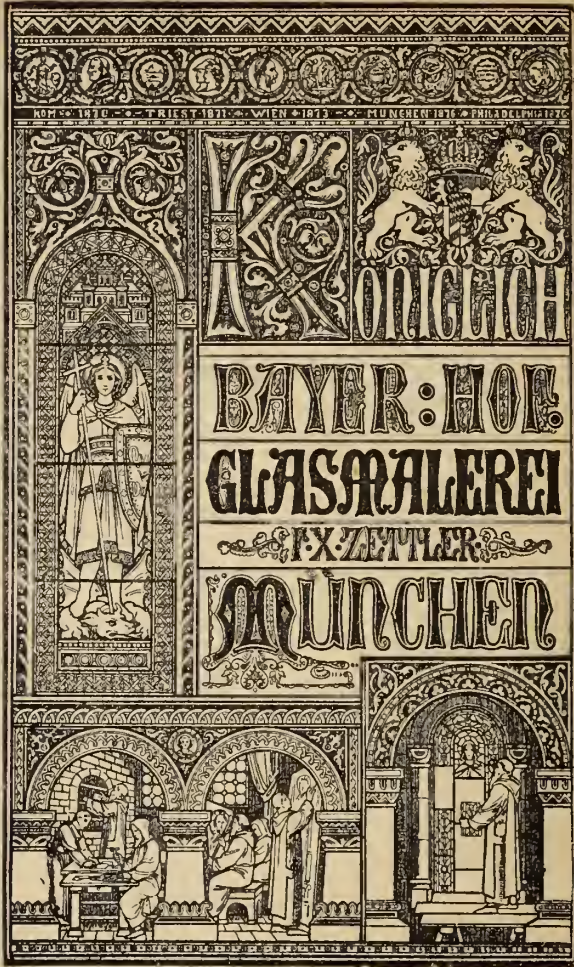 ROM 1870 TRIEST 1871 WIEN 1873 MUNCHEN 1876 PHILADELPHIA 1876
KÖNIGLICH
BAYER: HOF:
GLASMALEREI
F. X. ZETTLER
MÜNCHEN